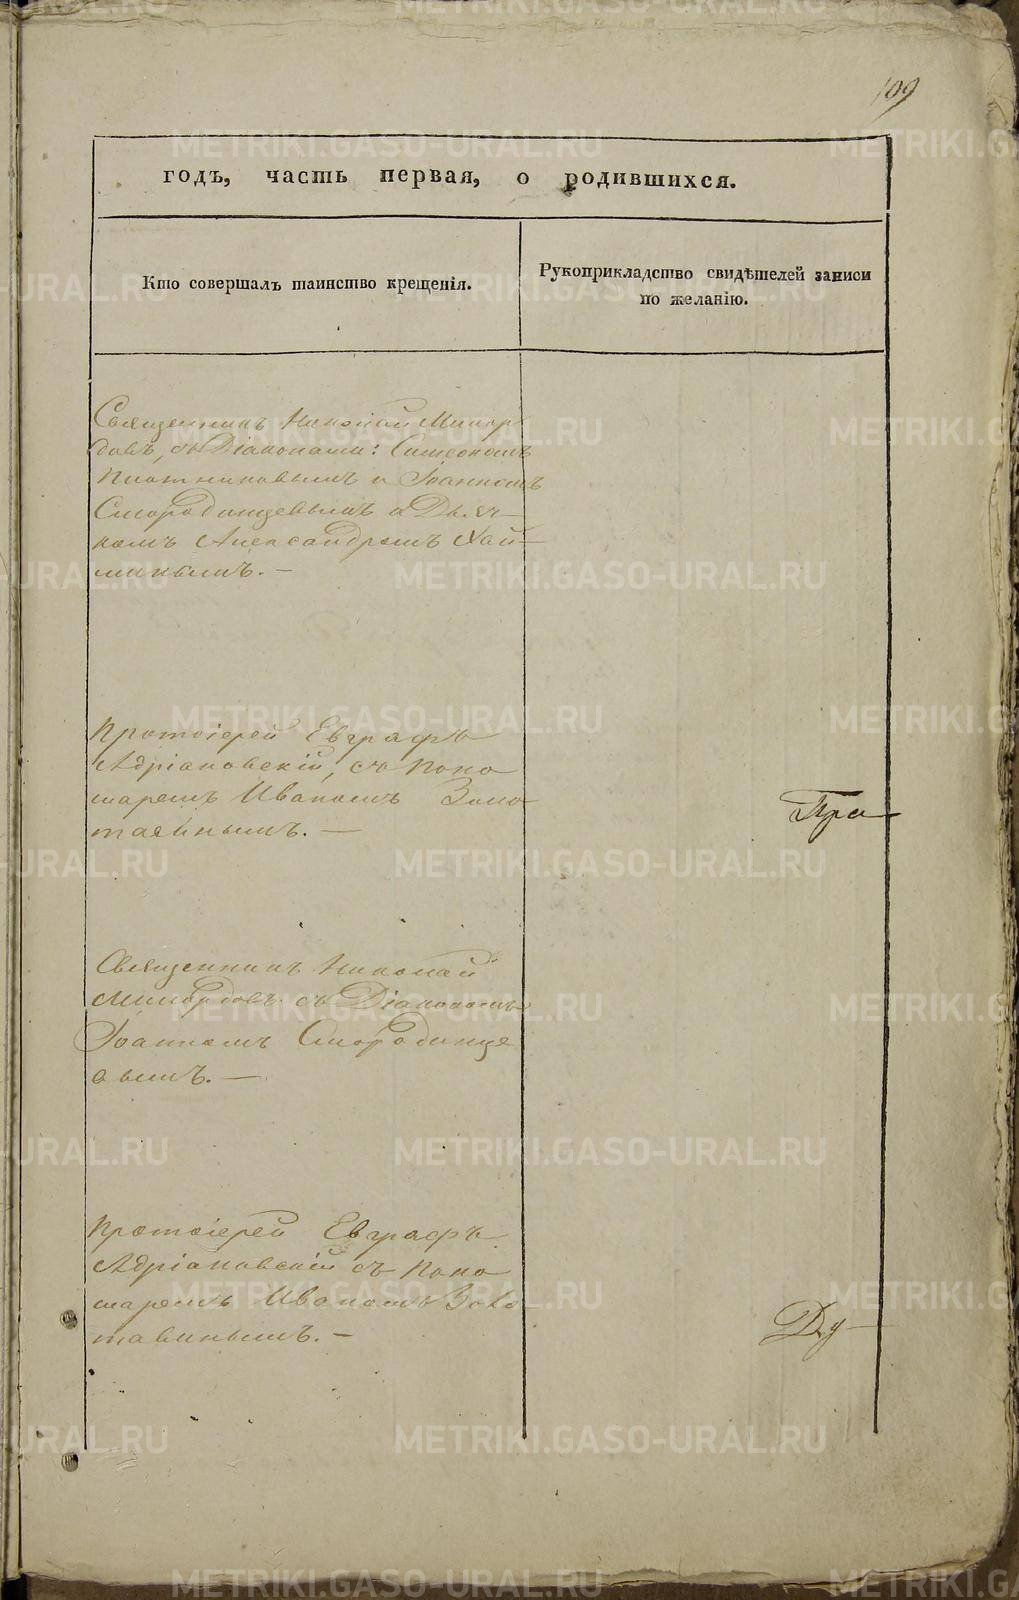 109
годъ, часть первая, о родившихся.
Кто совершалъ таинство крещенія.
Рукоприкладство свидѣтелей записи
по желанію.
Священникъ Николай
съ Діаконами: Симеономъ
Плотниковымъ и Іоанномъ
Смородинцевымъ и Дьяч-
комъ Александромъ Хай-
минымъ. —
Протоіерей Евграфъ
Адріановскій, съ Поно
маремъ Иваномъ Золо
тавинымъ. —
Пра
Священникъ Николай
съ Діакономъ
Іоанномъ Смородинце
вымъ. —
Протоіерей Евграфъ
Адріановскій съ Поно
маремъ Иваномъ Золо
тавинымъ. —
Ду
METRIKI.GASO-URAL.RU